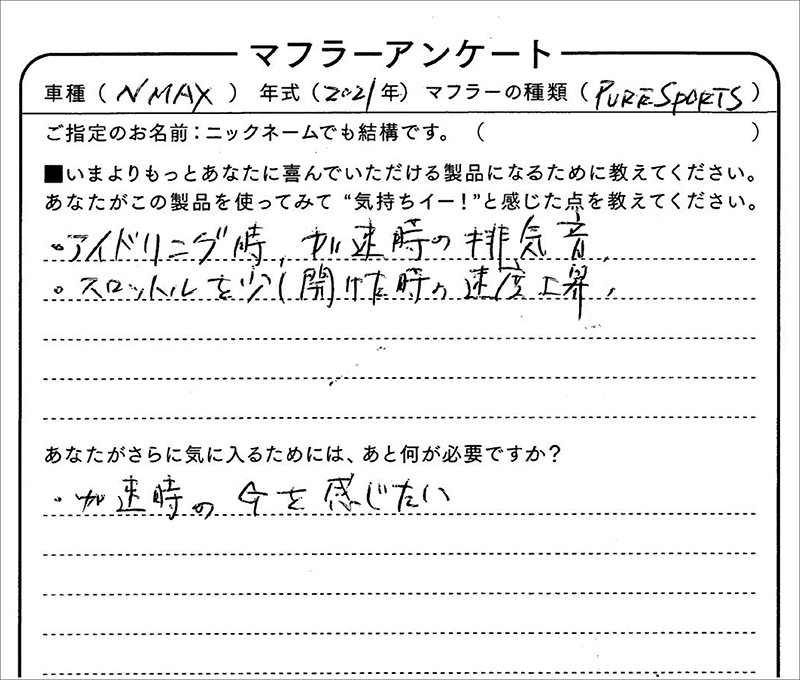 マフラーアンケート
車種（NMAX）年式（2021年）マフラーの種類（PURE SPORTS）
ご指定のお名前：ニックネームでも結構です。（　）
■いまよりもっとあなたに喜んでいただける製品になるために教えてください。
あなたがこの製品を使ってみて“気持ちイー！”と感じた点を教えてください。
・アイドリング時、加速時の排気音、
・スロットルを少し開けた時の速度上昇、
あなたがさらに気に入るためには、あと何が必要ですか？
・加速時のGを感じたい